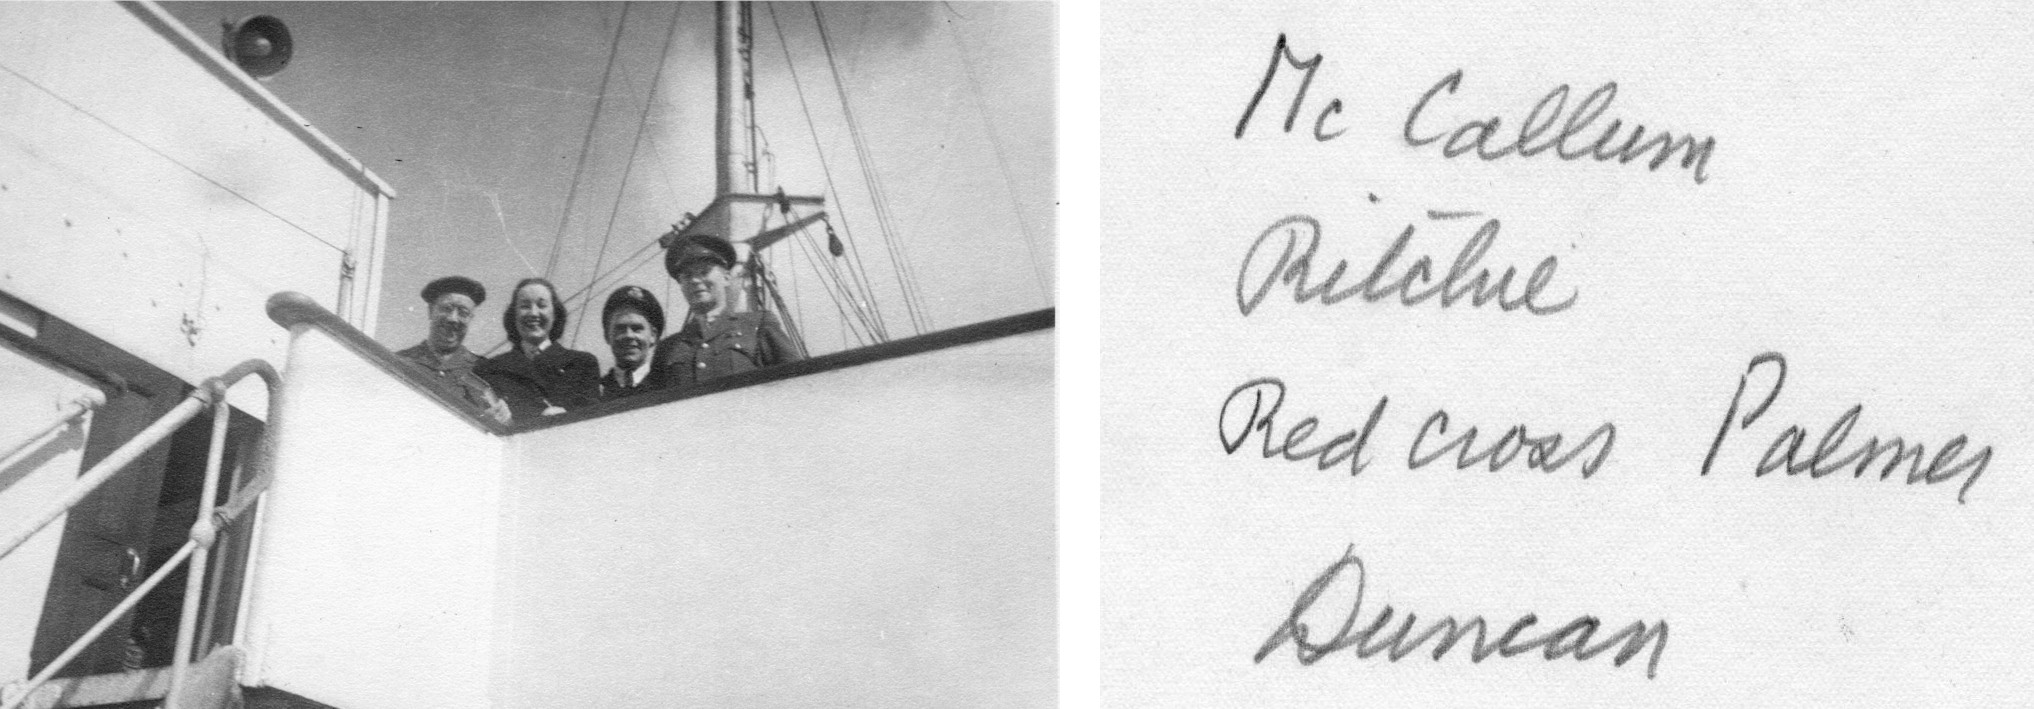 Mc Callum
Ritchie
Red cross Palmer
Duncan